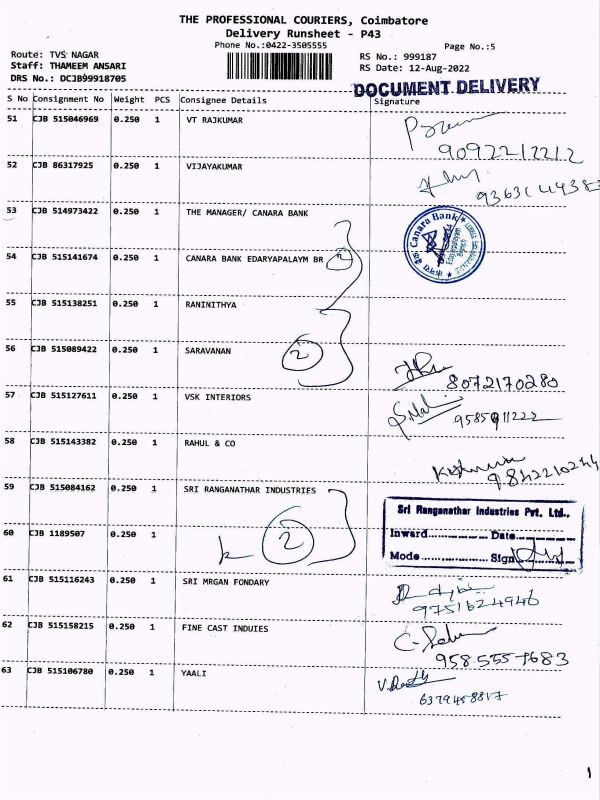 THE PROFESSIONAL COURIERS, Coimbatore
Delivery Runsheet - P43
Phone No.:0422-3505555
Page No.:5
Route: TVS NAGAR
RS No.: 999187
Staff: THAMEEM ANSARI
RS Date: 12-Aug-2022
DRS No.: DCJB99918705
DOCUMENT DELIVERY
S No Consignment No Weight PCS Consignee Details Signature
51 CJB 515046969 0.250 1 VT RAJKUMAR
9092212212
52 CJB 86317925 0.250 1 VIJAYAKUMAR
53 CJB 514973422 0.250 1 THE MANAGER/ CANARA BANK
Canara Bank
54 CJB 515141674 0.250 1 CANARA BANK EDARYAPALAYM BR 2
55 CJB 515138251 0.250 1 RANINITHYA
56 CJB 515089422 0.250 1 SARAVANAN 2
8072170280
57 CJB 515127611 0.250 1 VSK INTERIORS
9585911222
58 CJB 515143382 0.250 1 RAHUL & CO
9842210244
59 CJB 515084162 0.250 1 SRI RANGANATHAR INDUSTRIES
Sri Ranganathar Industries Pvt. Ltd.,
60 CJB 1189507 0.250 1 2
Inward Date
Mode Sign
61 CJB 515116243 0.250 1 SRI MRGAN FONDARY
9751624946
62 CJB 515158215 0.250 1 FINE CAST INDUIES
958 555 7683
63 CJB 515106780 0.250 1 YAALI
6379458817
1